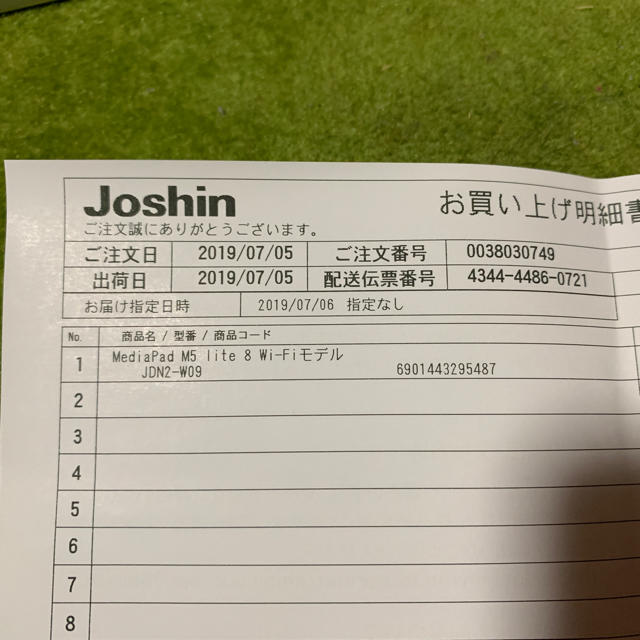 Joshin
お買い上げ明細書
ご注文誠にありがとうございます。
ご注文日 2019/07/05 ご注文番号 0038030749
出荷日 2019/07/05 配送伝票番号 4344-4486-0721
お届け指定日時 2019/07/06 指定なし
No. 商品名 / 型番 / 商品コード
1 MediaPad M5 lite 8 Wi-Fiモデル
JDN2-W09 6901443295487
2
3
4
5
6
7
8